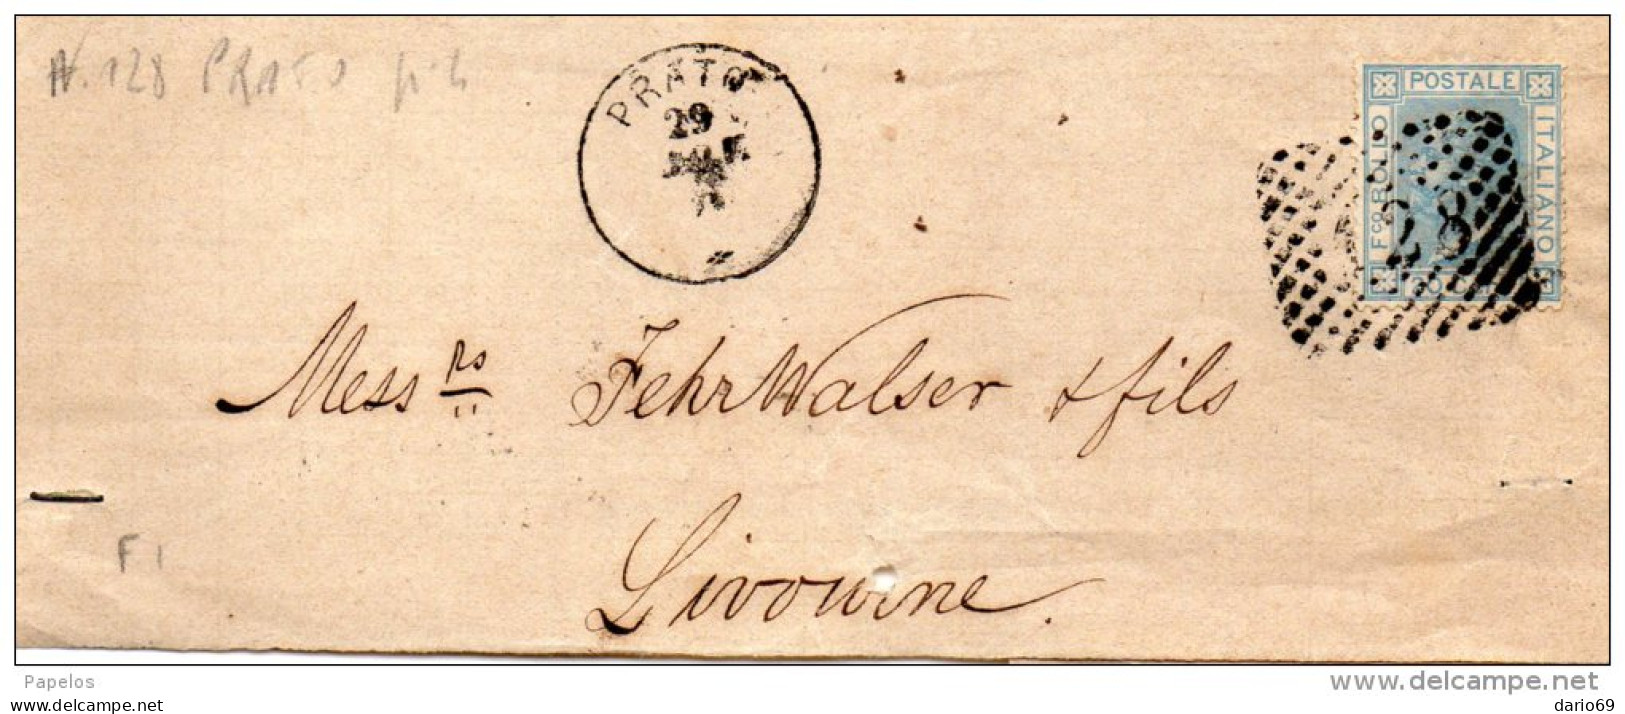 N. 128 PRATO
PRATO
29
POSTALE
Fco BOLLO
ITALIANO
20 C
28
Mess rs Fehr Walser & fils
Livourne.
F I
Papelos
www.delcampe.net
posta-storia
dario69